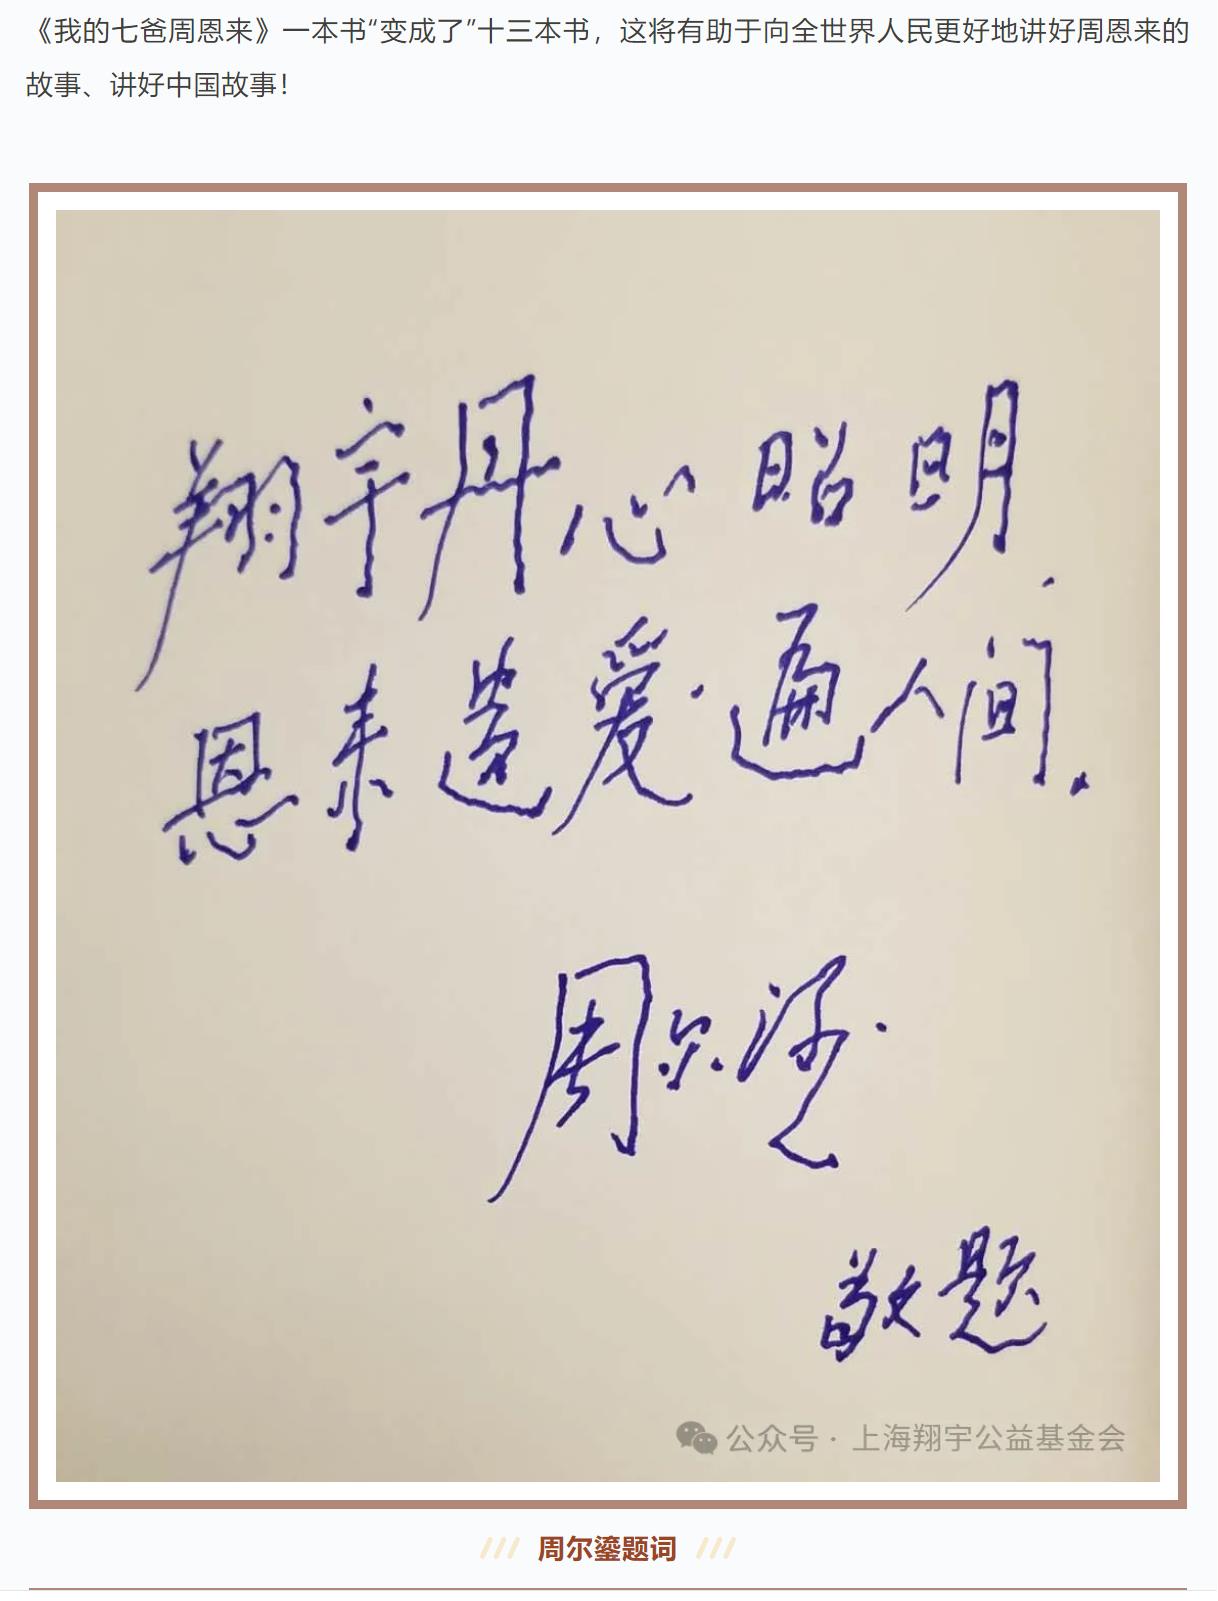 《我的七爸周恩来》一本书“变成了”十三本书，这将有助于向全世界人民更好地讲好周恩来的
故事、讲好中国故事！
翔宇丹心昭明
恩来遗爱遍人间.
周尔鎏
敬题
公众号 · 上海翔宇公益基金会
周尔鎏题词